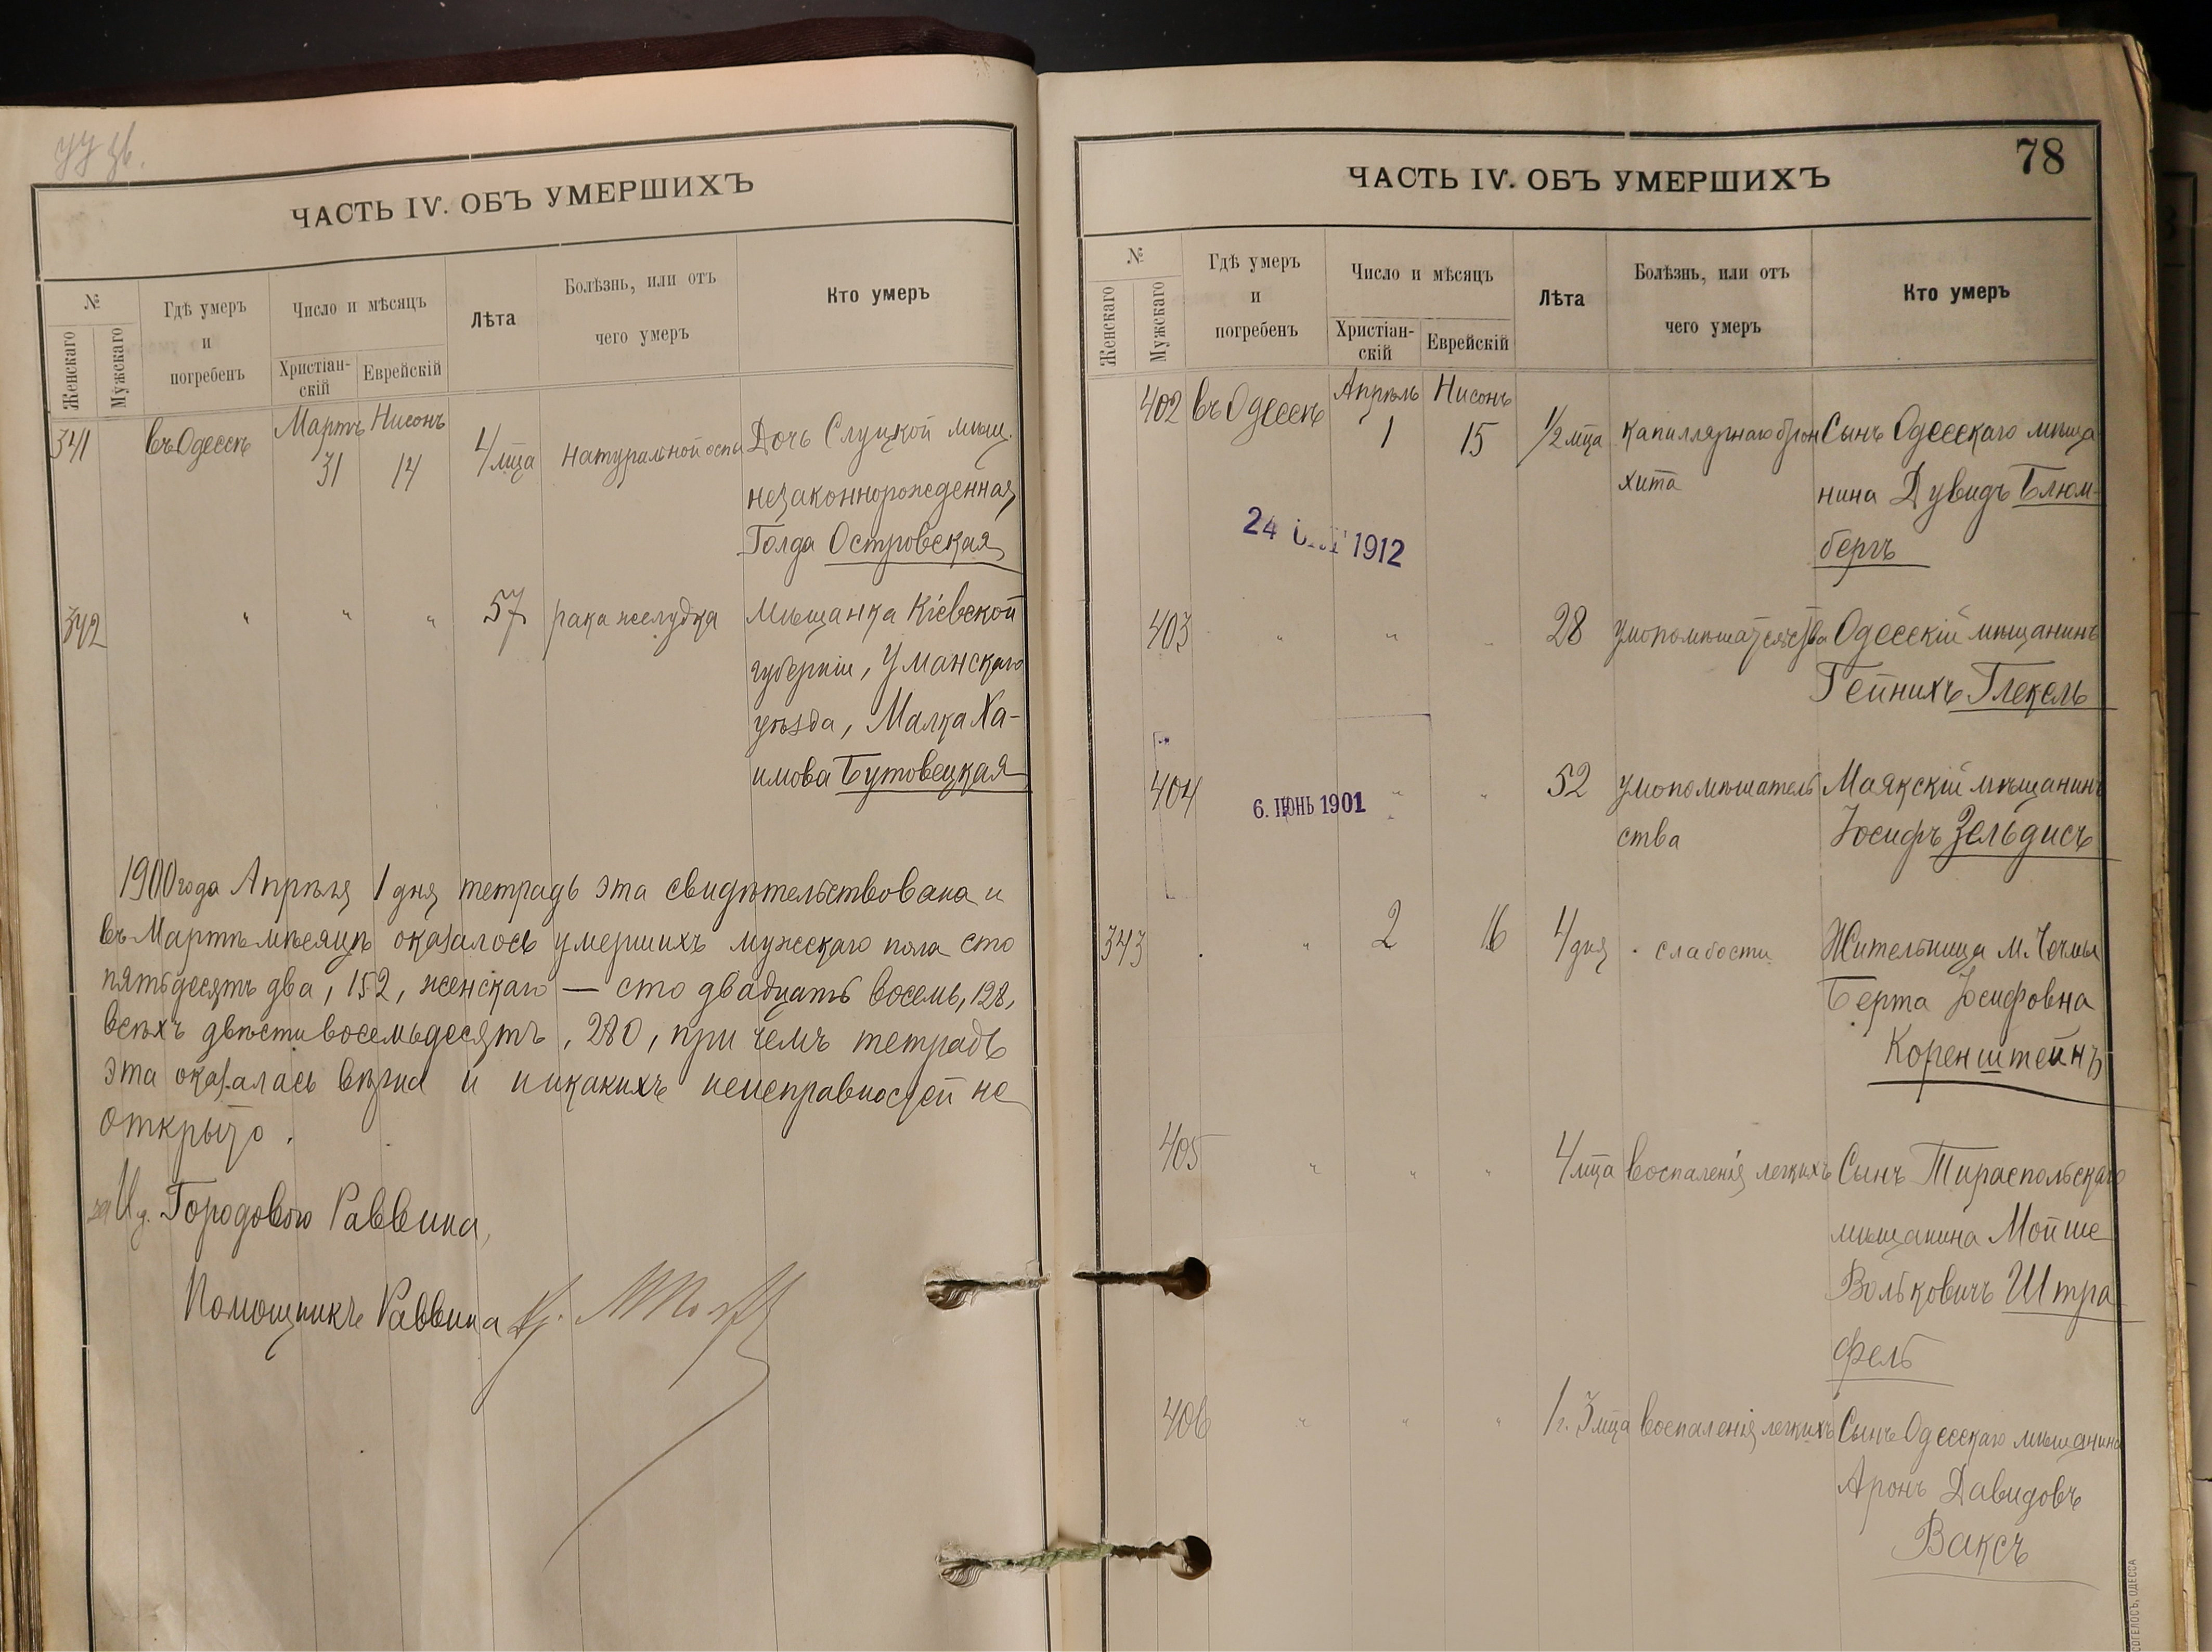 ЧАСТЬ IV. ОБЪ УМЕРШИХЪ
№
Женскаго
Мужскаго
Гдѣ умеръ
и
погребенъ
Число и мѣсяцъ
Христіан-
скій
Еврейскій
Лѣта
Болѣзнь, или отъ
чего умеръ
Кто умеръ
341 въ Одессѣ Мартъ 31 Нисонъ 14 4 мца натуральной оспы Дочь Слуцкой мѣщ.
незаконнорожденная
Голда Островская
342 " " " 57 рака желудка Мѣщанка Кіевской
губерніи, Уманскаго
уѣзда, Малка Ха-
имова Бутовецкая
1900 года Апрѣля 1 дня тетрадь эта свидѣтельствована и
въ Мартѣ мѣсяцѣ оказалось умершихъ мужскаго пола сто
пятьдесятъ два, 152, женскаго — сто двадцать восемь, 128,
всѣхъ двѣсти восемьдесятъ, 280, при чемъ тетрадь
эта оказалась вѣрна и никакихъ неисправностей не
открыто.
И д. Городового Раввина,
Помощникъ Раввина
ЧАСТЬ IV. ОБЪ УМЕРШИХЪ
78
№
Женскаго
Мужскаго
Гдѣ умеръ
и
погребенъ
Число и мѣсяцъ
Христіан-
скій
Еврейскій
Лѣта
Болѣзнь, или отъ
чего умеръ
Кто умеръ
402 въ Одессѣ Апрѣль 1 Нисонъ 15 1/2 мца капиллярнаго брон Сынъ Одесскаго мѣща
хита нина Дувидъ Блюм-
бергъ
24 1912
403 " " " 28 умопомѣшательства Одесскій мѣщанинъ
Гейнихъ Глекель
404 6. ІЮНЬ 1901 " " 52 умопомѣшатель Маякскій мѣщанинъ
ства Іосифъ Зельдисъ
343 " " 2 16 4 дня слабости Жительница м.
Берта Іосифовна
Коренштейнъ
405 " " " 4 мца воспаленія легкихъ Сынъ Тираспольскаго
мѣщанина Мойше
Вольковичъ Штра
фель
406 " " " 1 г. 3 мца воспаленія легкихъ Сынъ Одесскаго мѣщанина
Аронъ Давидовъ
Ваксъ